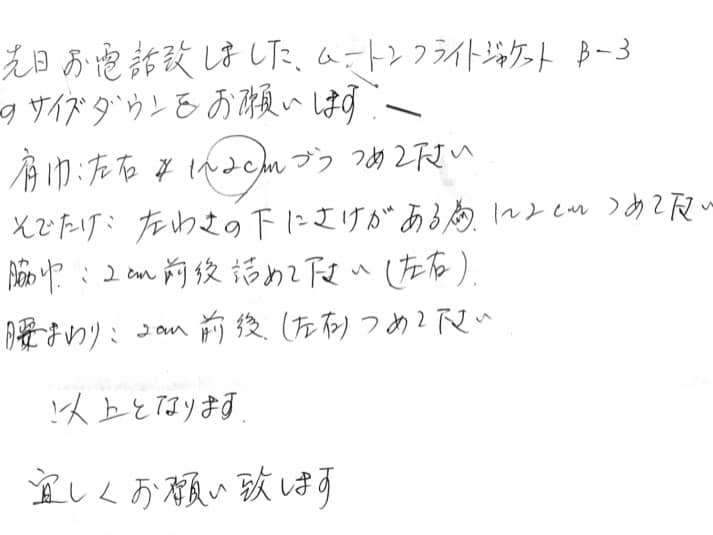 先日お電話致しました、ムートンフライトジャケット B-3
のサイズダウンをお願いします.
肩巾:左右 1~2cmづつ つめて下さい
そでたけ: 左わきの下にさけがある為. 1~2cm つめて下さい
脇巾: 2cm前後詰めて下さい(左右).
腰まわり: 2cm前後.(左右)つめて下さい
以上となります.
宜しくお願い致します